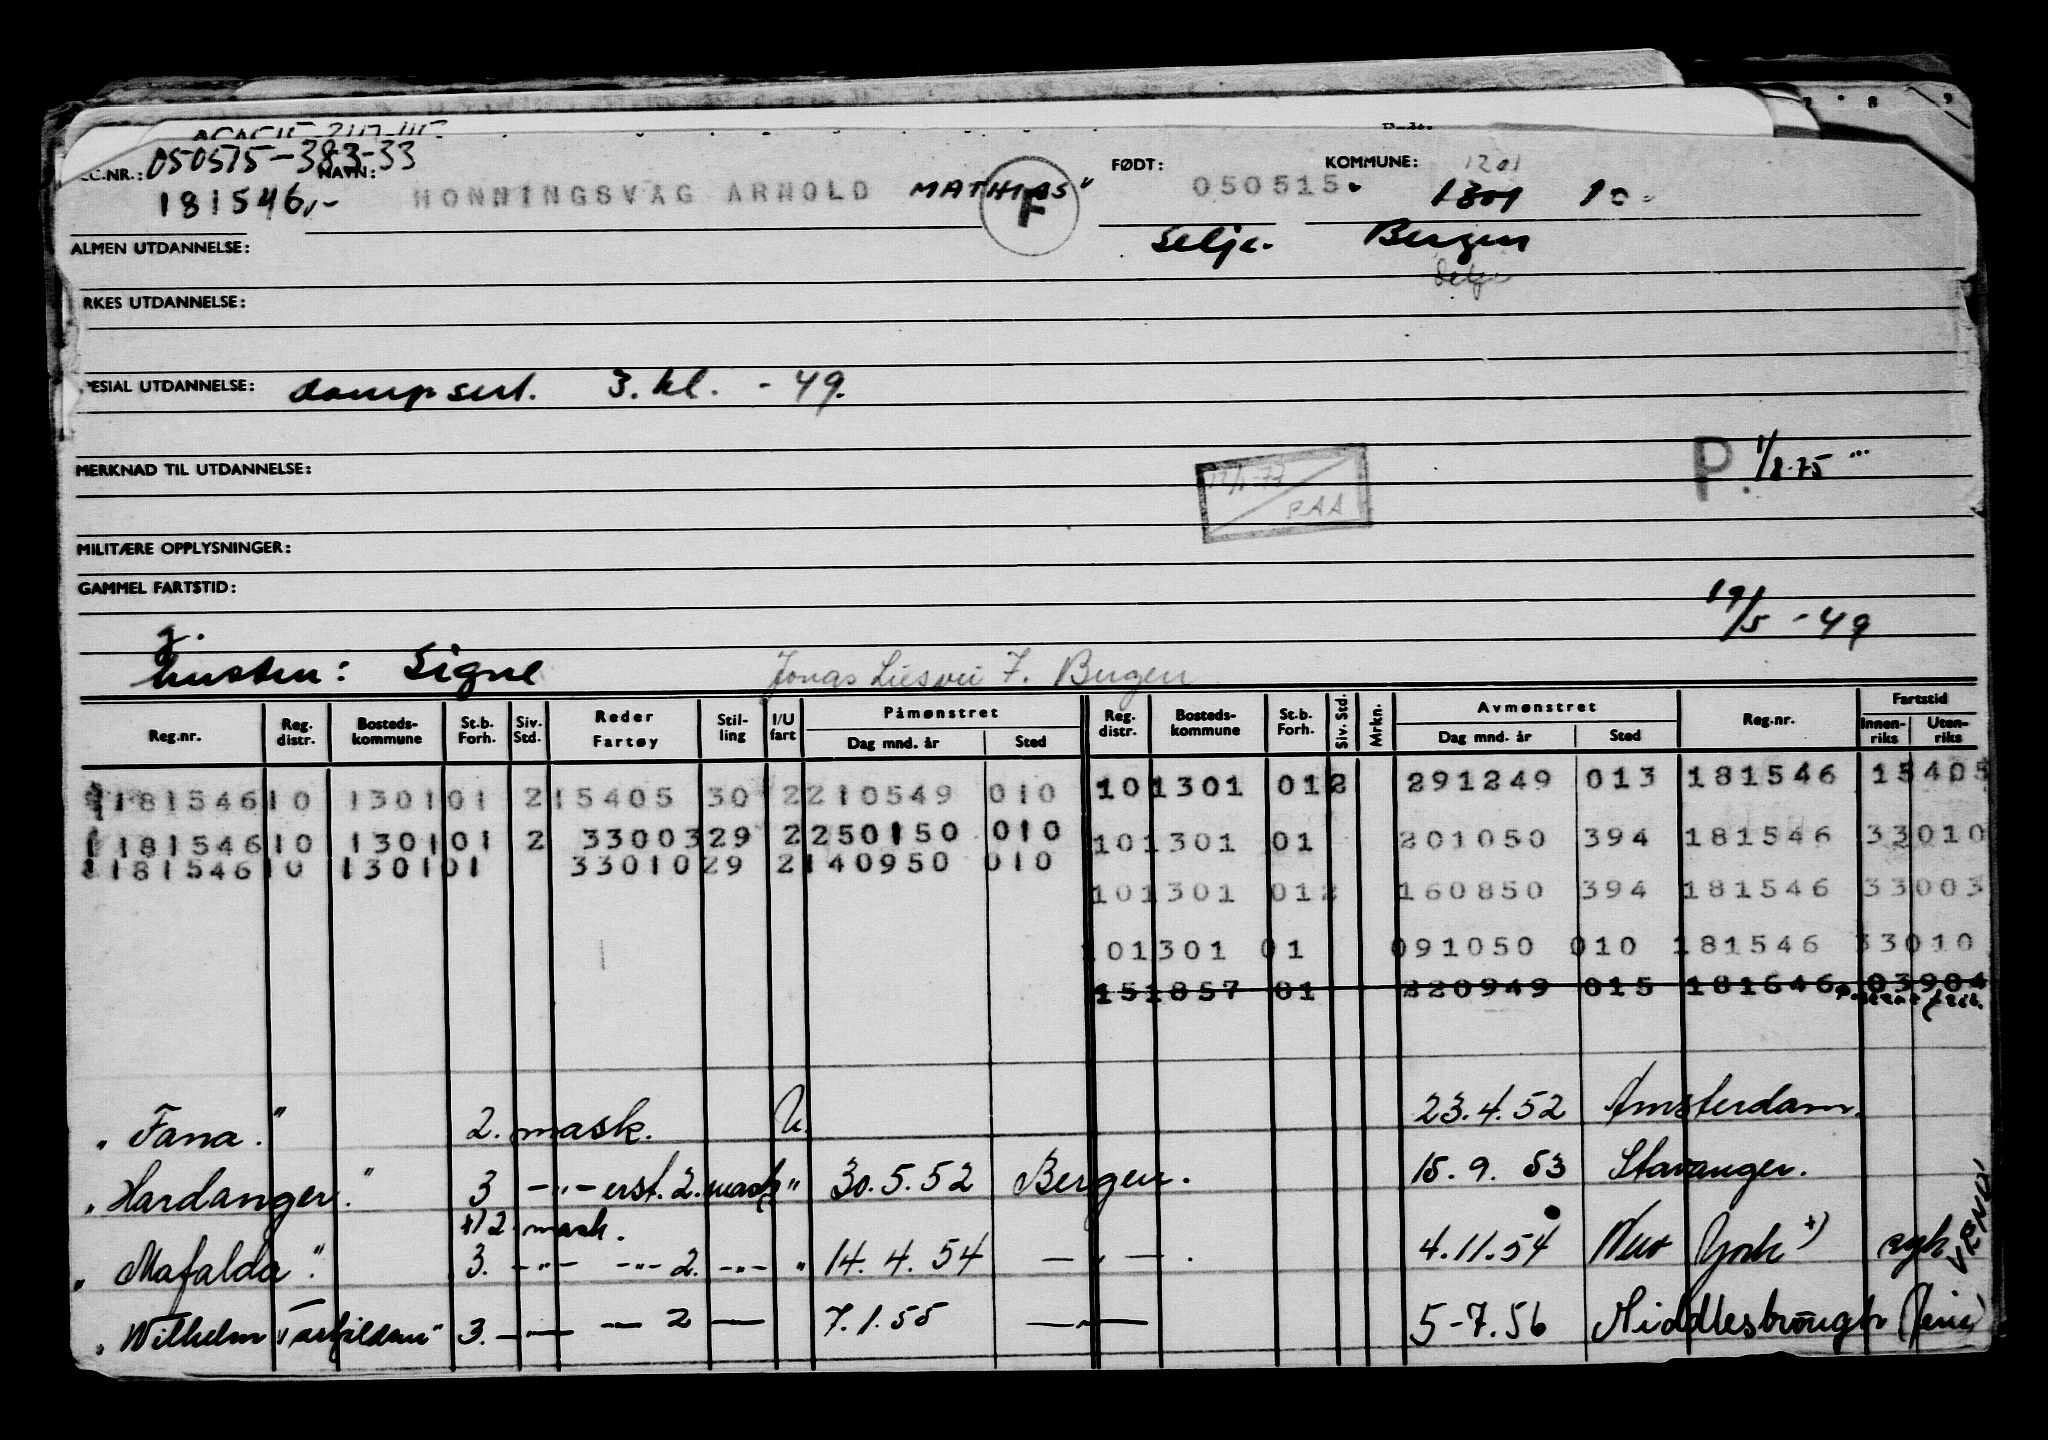 050515-383-33
FØDT: KOMMUNE: 1201
NAVN:
181546,- HONNINGSVÅG ARNOLD MATHIAS" F 050515. 1301 10
ALMEN UTDANNELSE: Selje. Bergen
Selje
RKES UTDANNELSE:
PESIAL UTDANNELSE: dampsert. 3. kl. - 49.
MERKNAD TIL UTDANNELSE: P. 1/8-75
PAA
MILITÆRE OPPLYSNINGER:
GAMMEL FARTSTID: 19/5 - 49
g.
hustru: Signe Jonas Liesvei 7. Bergen
Reg.nr. Reg. distr. Bosteds-kommune St.b. Forh. Siv. Std. Reder Fartøy Stil-ling I/U fart Påmønstret Dag mnd. år Sted Reg. distr. Bosteds-kommune St.b. Forh. Siv. Std. Mrkn. Avmønstret Dag mnd. år Sted Reg.nr. Fartstid Innen-riks Uten-riks
181546 10 1301 01 2 15405 30 2 210549 010 10 1301 01 2 291249 013 181546 15405
181546 10 1301 01 2 33003 29 2 250150 010 10 1301 01 201050 394 181546 33010
181546 10 1301 01 33010 29 2 140950 010
10 1301 01 2 160850 394 181546 33003
101301 01 091050 010 181546 33010
151857 01 220949 015 181646 03904
"Fana." 2. mask. U. 23.4.52 Amsterdam.
"Hardanger." 3 -"- erst. 2. mask " 30.5.52 Bergen. 15.9.53 Stavanger.
+) 2 mask.
"Mafalda". 3. -"- -"- 2. -"- " 14.4.54 -"-. 4.11.54 New York +) syk
"Wilhelm Torkildsen" 3. -"- 2 — 7.1.55 -"- 5-7.56 Middlesbrough